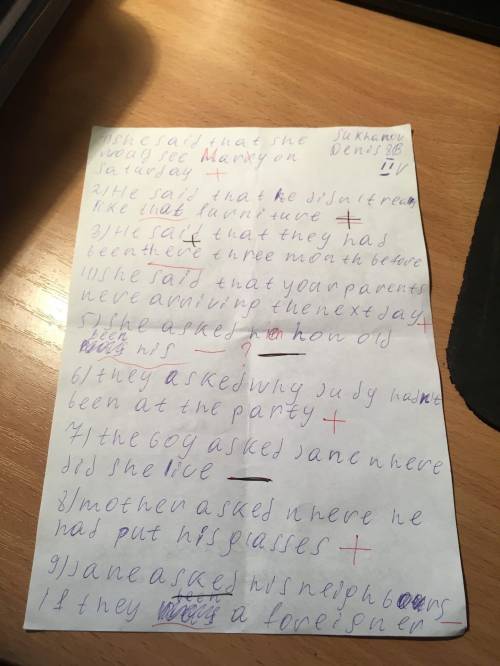 1) she said that she
would see Marry on
saturday +
Sukhanov
Denis 8B
II V
2) He said that he didn't really
like that furniture +
3) He said that they had
been there three month before
4) she said that your parents
were arriving the next day +
5) she asked him how old
been his — ?
6) they asked why Judy hadn't
been at the party +
7) the boy asked Jane where
did she live —
8) mother asked where he
had put his glasses +
9) Jane asked his neighbours
if they been a foreigner —